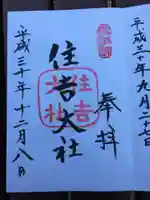 平成三十年九月二十七日
奉拝
住吉大社
平成三十年十二月八日
住吉
大社